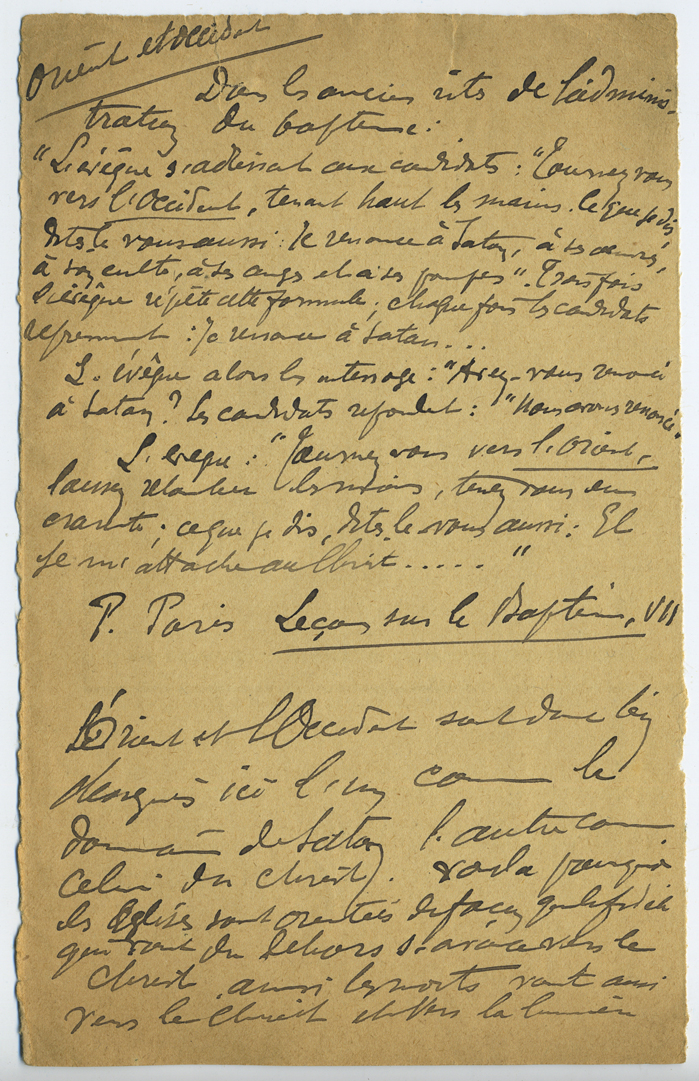 Orient et Occident
Dans les anciens rits de l'adminis-
tration du baptême :
"L'évêque s'adressait aux candidats : "Tournez vous
vers l'Occident, tenant haut les mains. Ce que je dis
dites le vous aussi : Je renonce à Satan, à ses œuvres,
à son culte, à ses anges et à ses pompes". Trois fois
l'évêque répète cette formule, chaque fois les candidats
reprennent : je renonce à Satan...
L'évêque alors les interroge : "Avez-vous renoncé
à Satan ? Les candidats répondent : "Nous avons renoncé"
L'évêque : "Tournez vous vers l'Orient,
laissez retomber les mains, tenez vous en
crainte ; ce que je dis, dites le vous aussi : Et
je m'attache au Christ..... "
P. Paris Leçons sur le Baptême, VII
L'Orient et l'Occident sont donc bien
désignés ici l'un comme le
domaine de Satan l'autre comme
celui du Christ). Voila pourquoi
les Eglises sont orientées de façon que le fidèle
qui vient du dehors s'avance vers le
Christ, ainsi les morts vont aussi
vers le Christ et vers la lumière